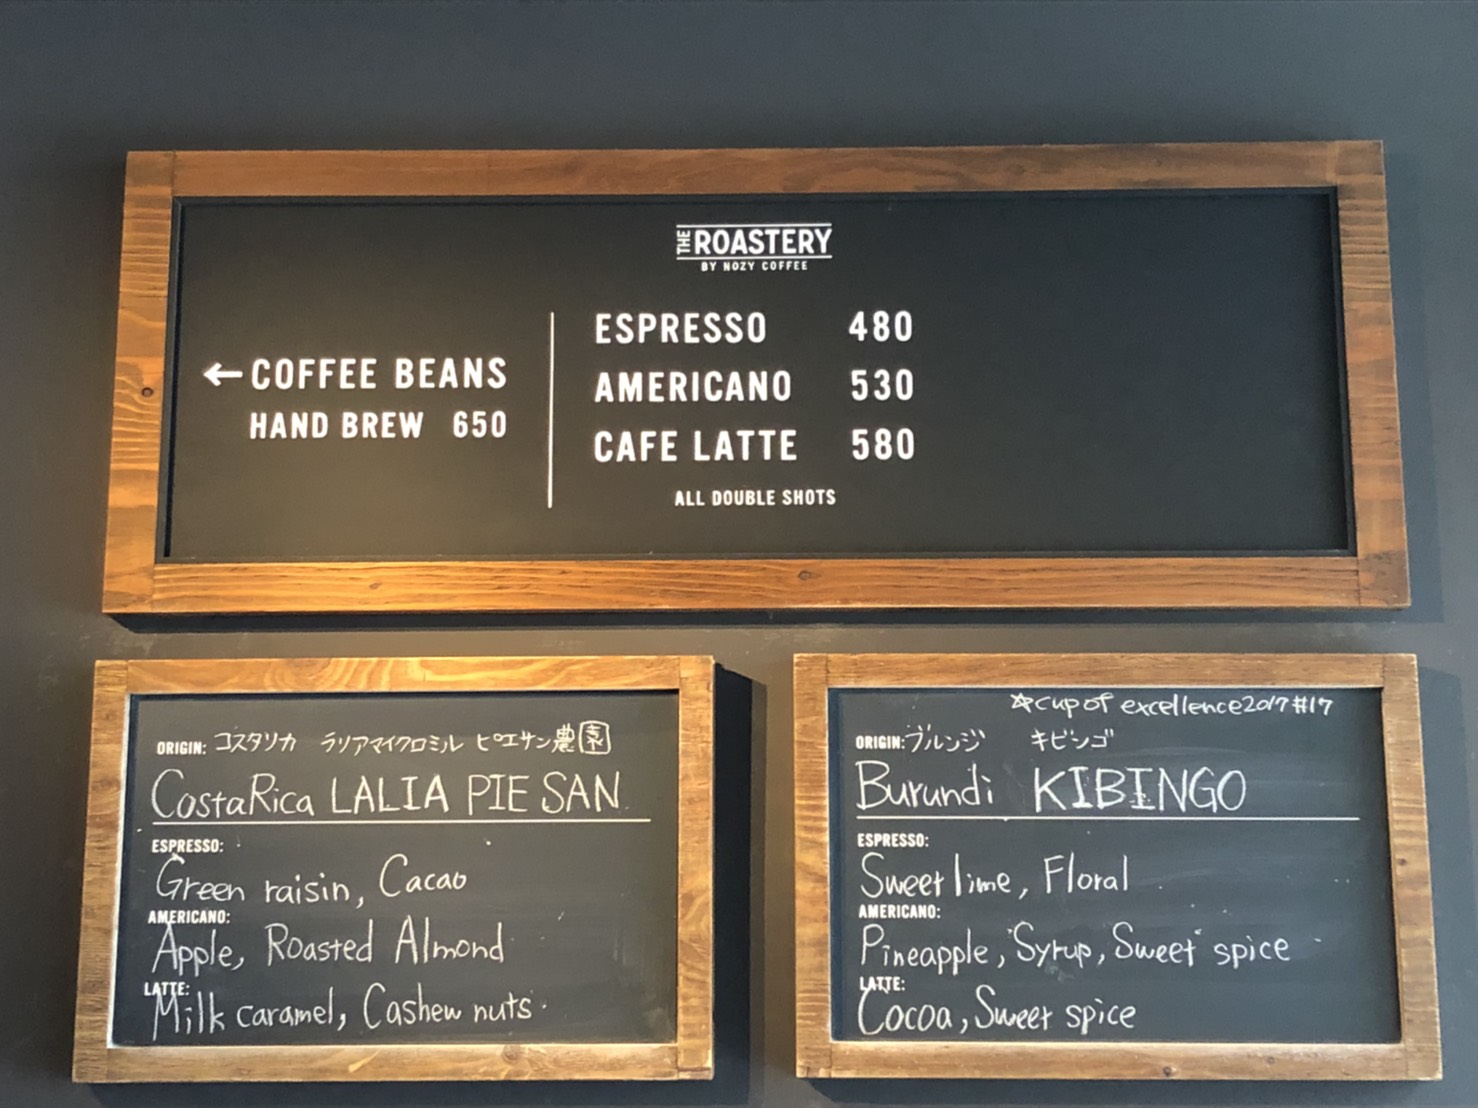 THE ROASTERY
BY NOZY COFFEE
← COFFEE BEANS
HAND BREW 650
ESPRESSO 480
AMERICANO 530
CAFE LATTE 580
ALL DOUBLE SHOTS
ORIGIN: コスタリカ ラリアマイクロミル ピエサン農園
CostaRica LALIA PIE SAN
ESPRESSO:
Green raisin, Cacao
AMERICANO:
Apple, Roasted Almond
LATTE:
Milk caramel, Cashew nuts
☆cup of excellence2017#17
ORIGIN: ブルンジ キビンゴ
Burundi KIBINGO
ESPRESSO:
Sweet lime, Floral
AMERICANO:
Pineapple, Syrup, Sweet spice
LATTE:
Cocoa, Sweet spice